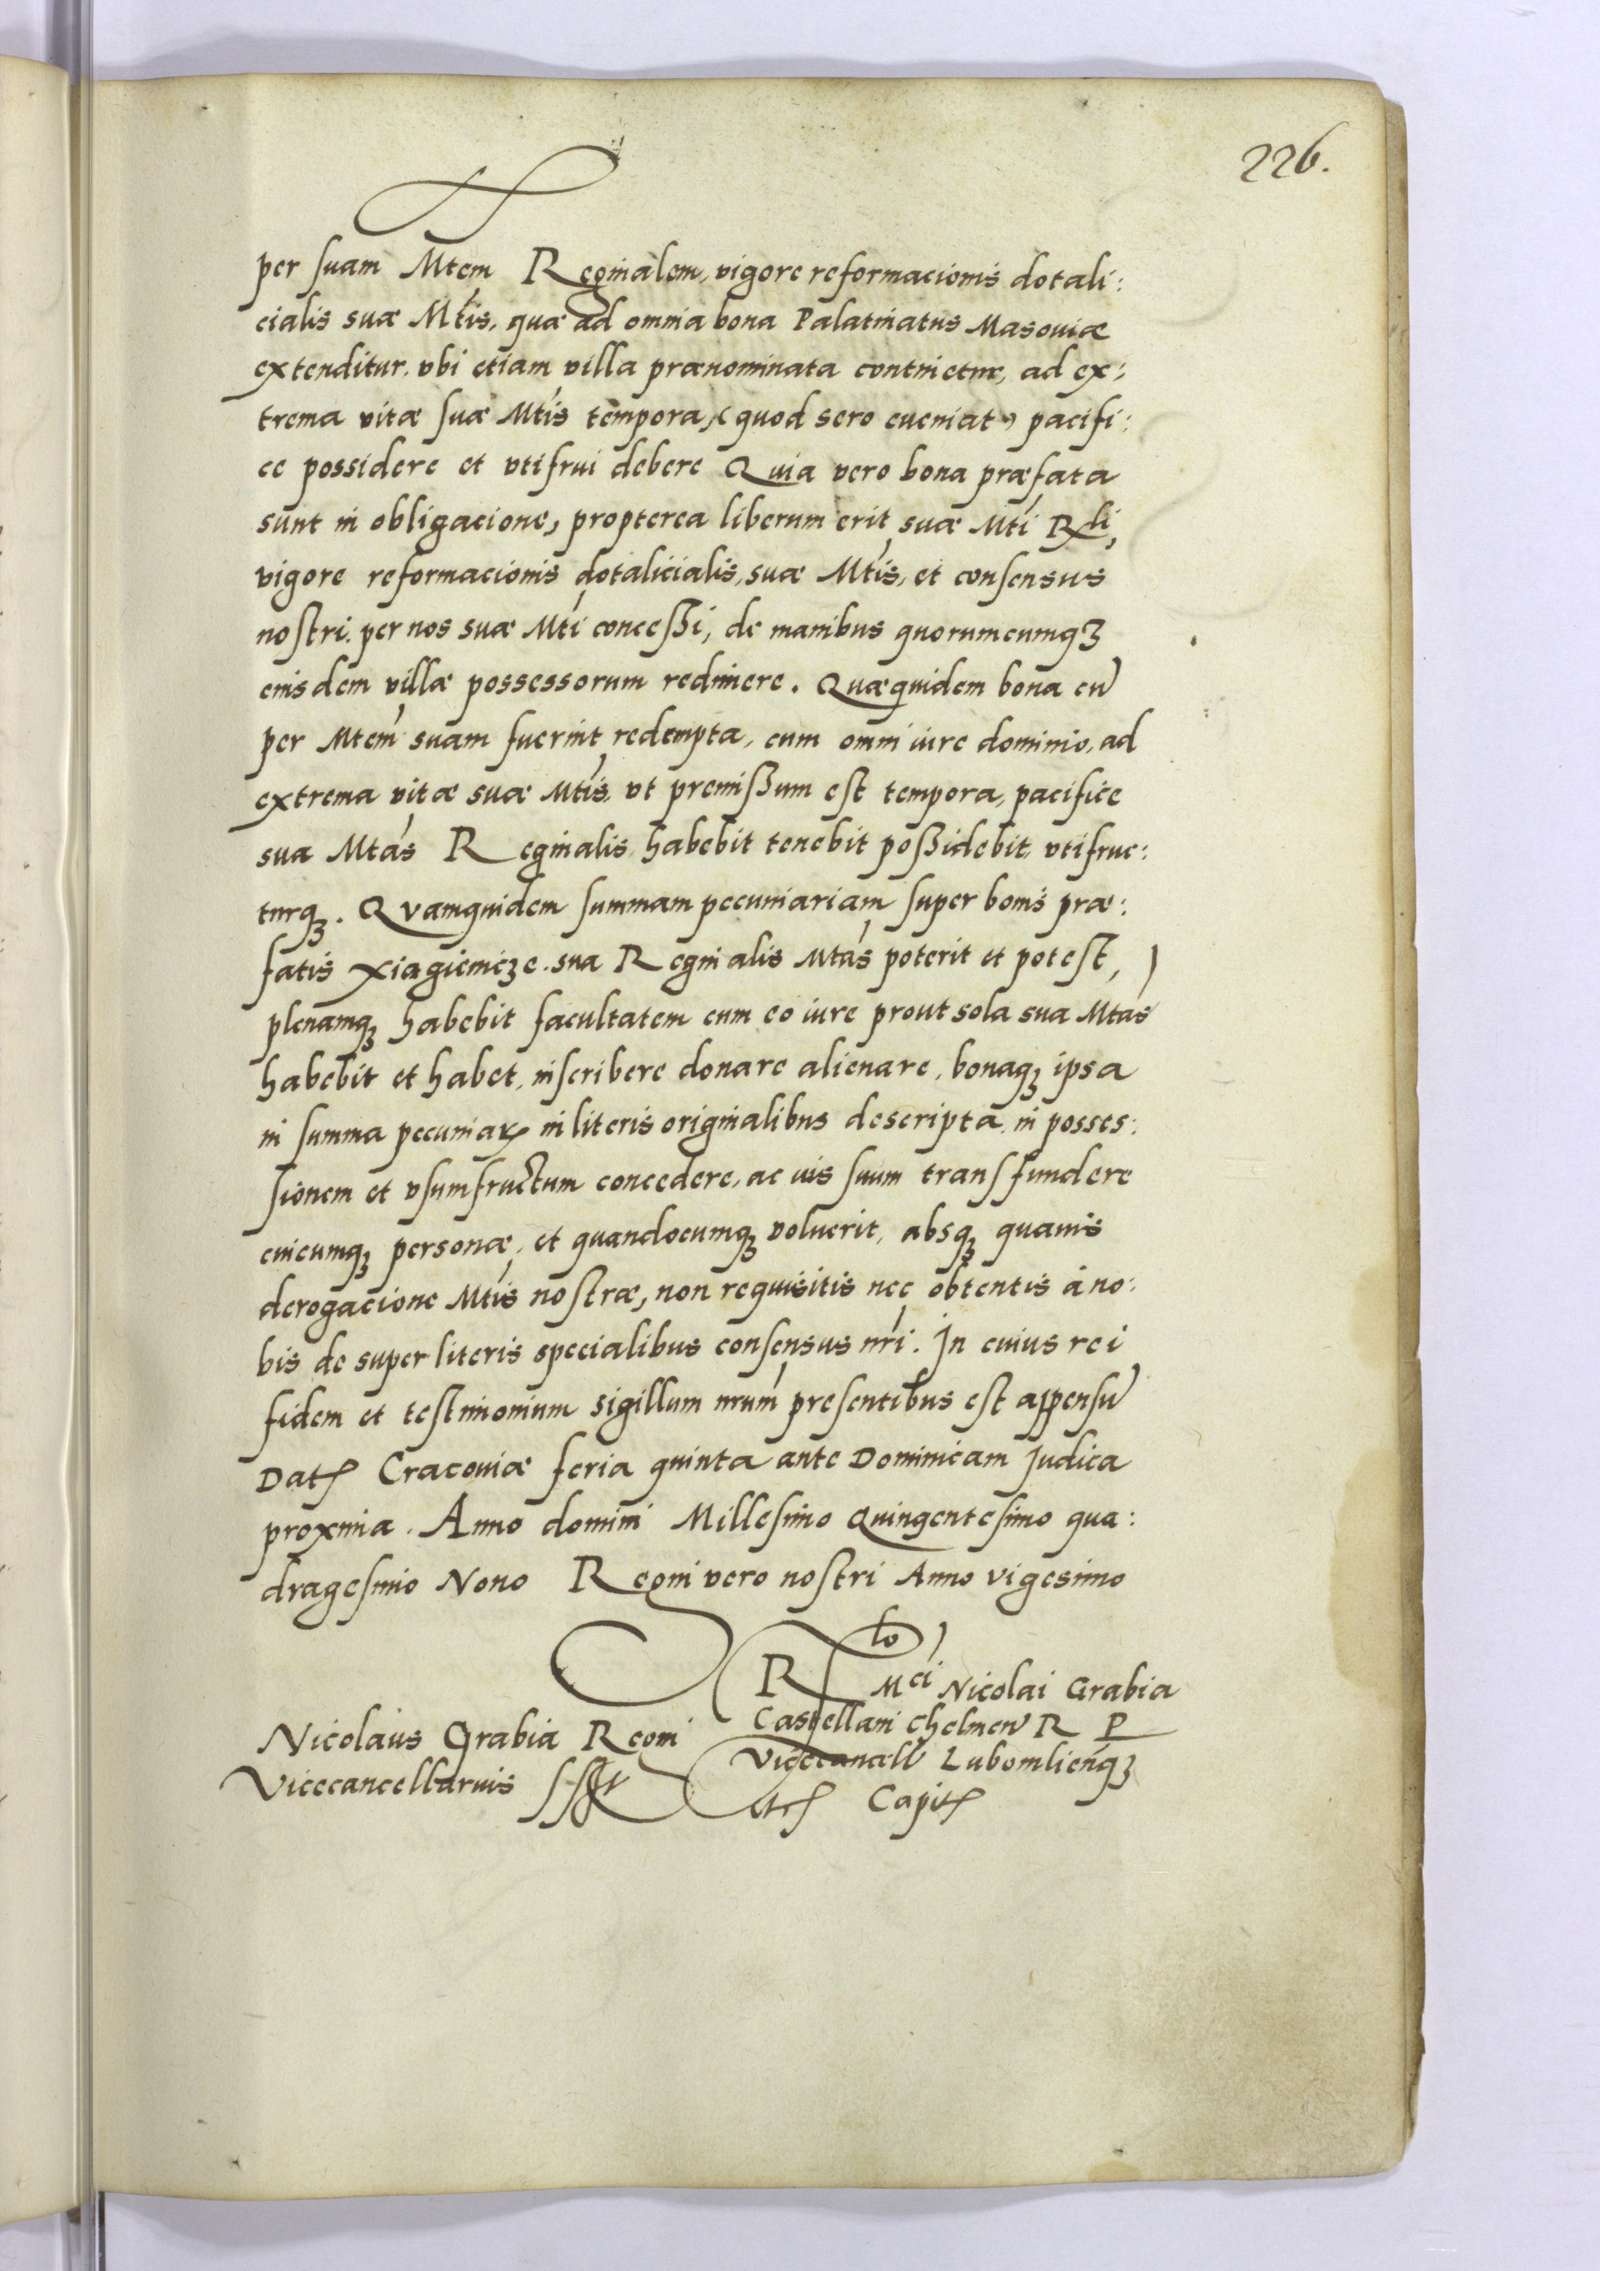 226.
per suam Mtem Reginalem, vigore reformacionis dotali:
cialis suæ Mtis, quæ ad omnia bona Palatinatus Masoviæ
extenditur, vbi etiam villa prænominata continetur, ad ex:
trema vitæ suæ Mtis tempora, (quod sero eveniat) pacifi:
ce possidere et vtifrui debere Quia vero bona præfata
sunt in obligacione, propterea liberum erit suæ Mti Rli,
vigore reformacionis dotalicialis, suæ Mtis, et consensus
nostri per nos suæ Mti concessi, de manibus quorumcumqȝ
eiusdem villæ possessorum redimere. Quæquidem bona cũ
per Mtem suam fuerint redempta, cum omni iure dominio, ad
extrema vitæ suæ Mtis, vt premissum est tempora, pacifice
sua Mtas Reginalis habebit tenebit possidebit vtifrue:
turqȝ. Quamquidem summam pecuniariam super bonis præ:
fatis Xiagienicze sua Reginalis Mtas poterit et potest,
plenamqȝ habebit facultatem cum eo iure prout sola sua Mtas
habebit et habet, inscribere donare alienare, bonaqȝ ipsa
in summa pecuniaꝝ in literis originalibus descripta in posses:
sionem et vsumfructum concedere, ac ius suum transfundere
cuicumqȝ personæ, et quandocumqȝ voluerit, absqȝ quavis
derogacione Mtis nostræ, non requisitis nec obtentis à no:
bis de super literis specialibus consensus nri. In cuius rei
fidem et testimonium sigillum nrum presentibus est appensũ
Datꝭ Cracoviæ feria quinta ante Dominicam Judica
proxima. Anno domini Millesimo Quingentesimo qua:
dragesimo Nono Regni vero nostri Anno vigesimo
Rlo Mci Nicolai Grabia
Castellani Chelmeñ R P
Nicolaus Grabia Regni
Vicecancell Lubomlieñqȝ
Vicecancellarius sst
etc Capitꝭ